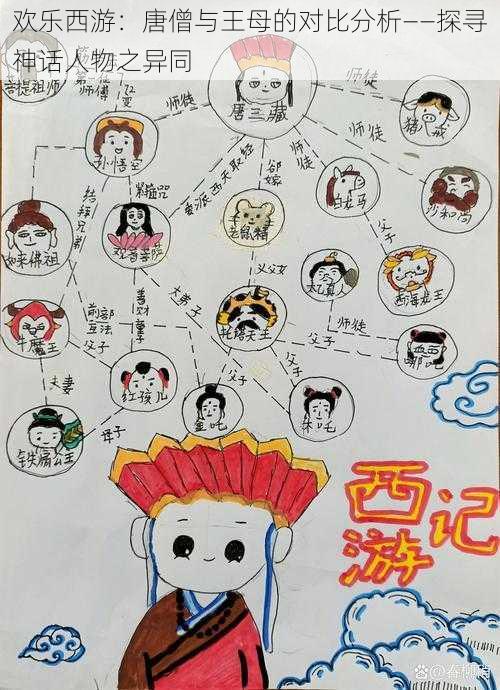 欢乐西游：唐僧与王母的对比分析——探寻
神话人物之异同
菩提祖师
师徒
唐三藏
师徒
猪八戒
孙悟空
师徒
师徒
紧箍咒
委派西天取经
欲嫁
白龙马
沙和尚
结拜兄弟
如来佛祖
观音菩萨
老鼠精
父子
太乙真人
西海龙王
义父女
善财童子
大弟子
牛魔王
父子
托塔天王
师徒
父子
哪吒
夫妻
红孩儿
父子
父子
金吒
木吒
铁扇公主
母子
西游记
@春柳湾